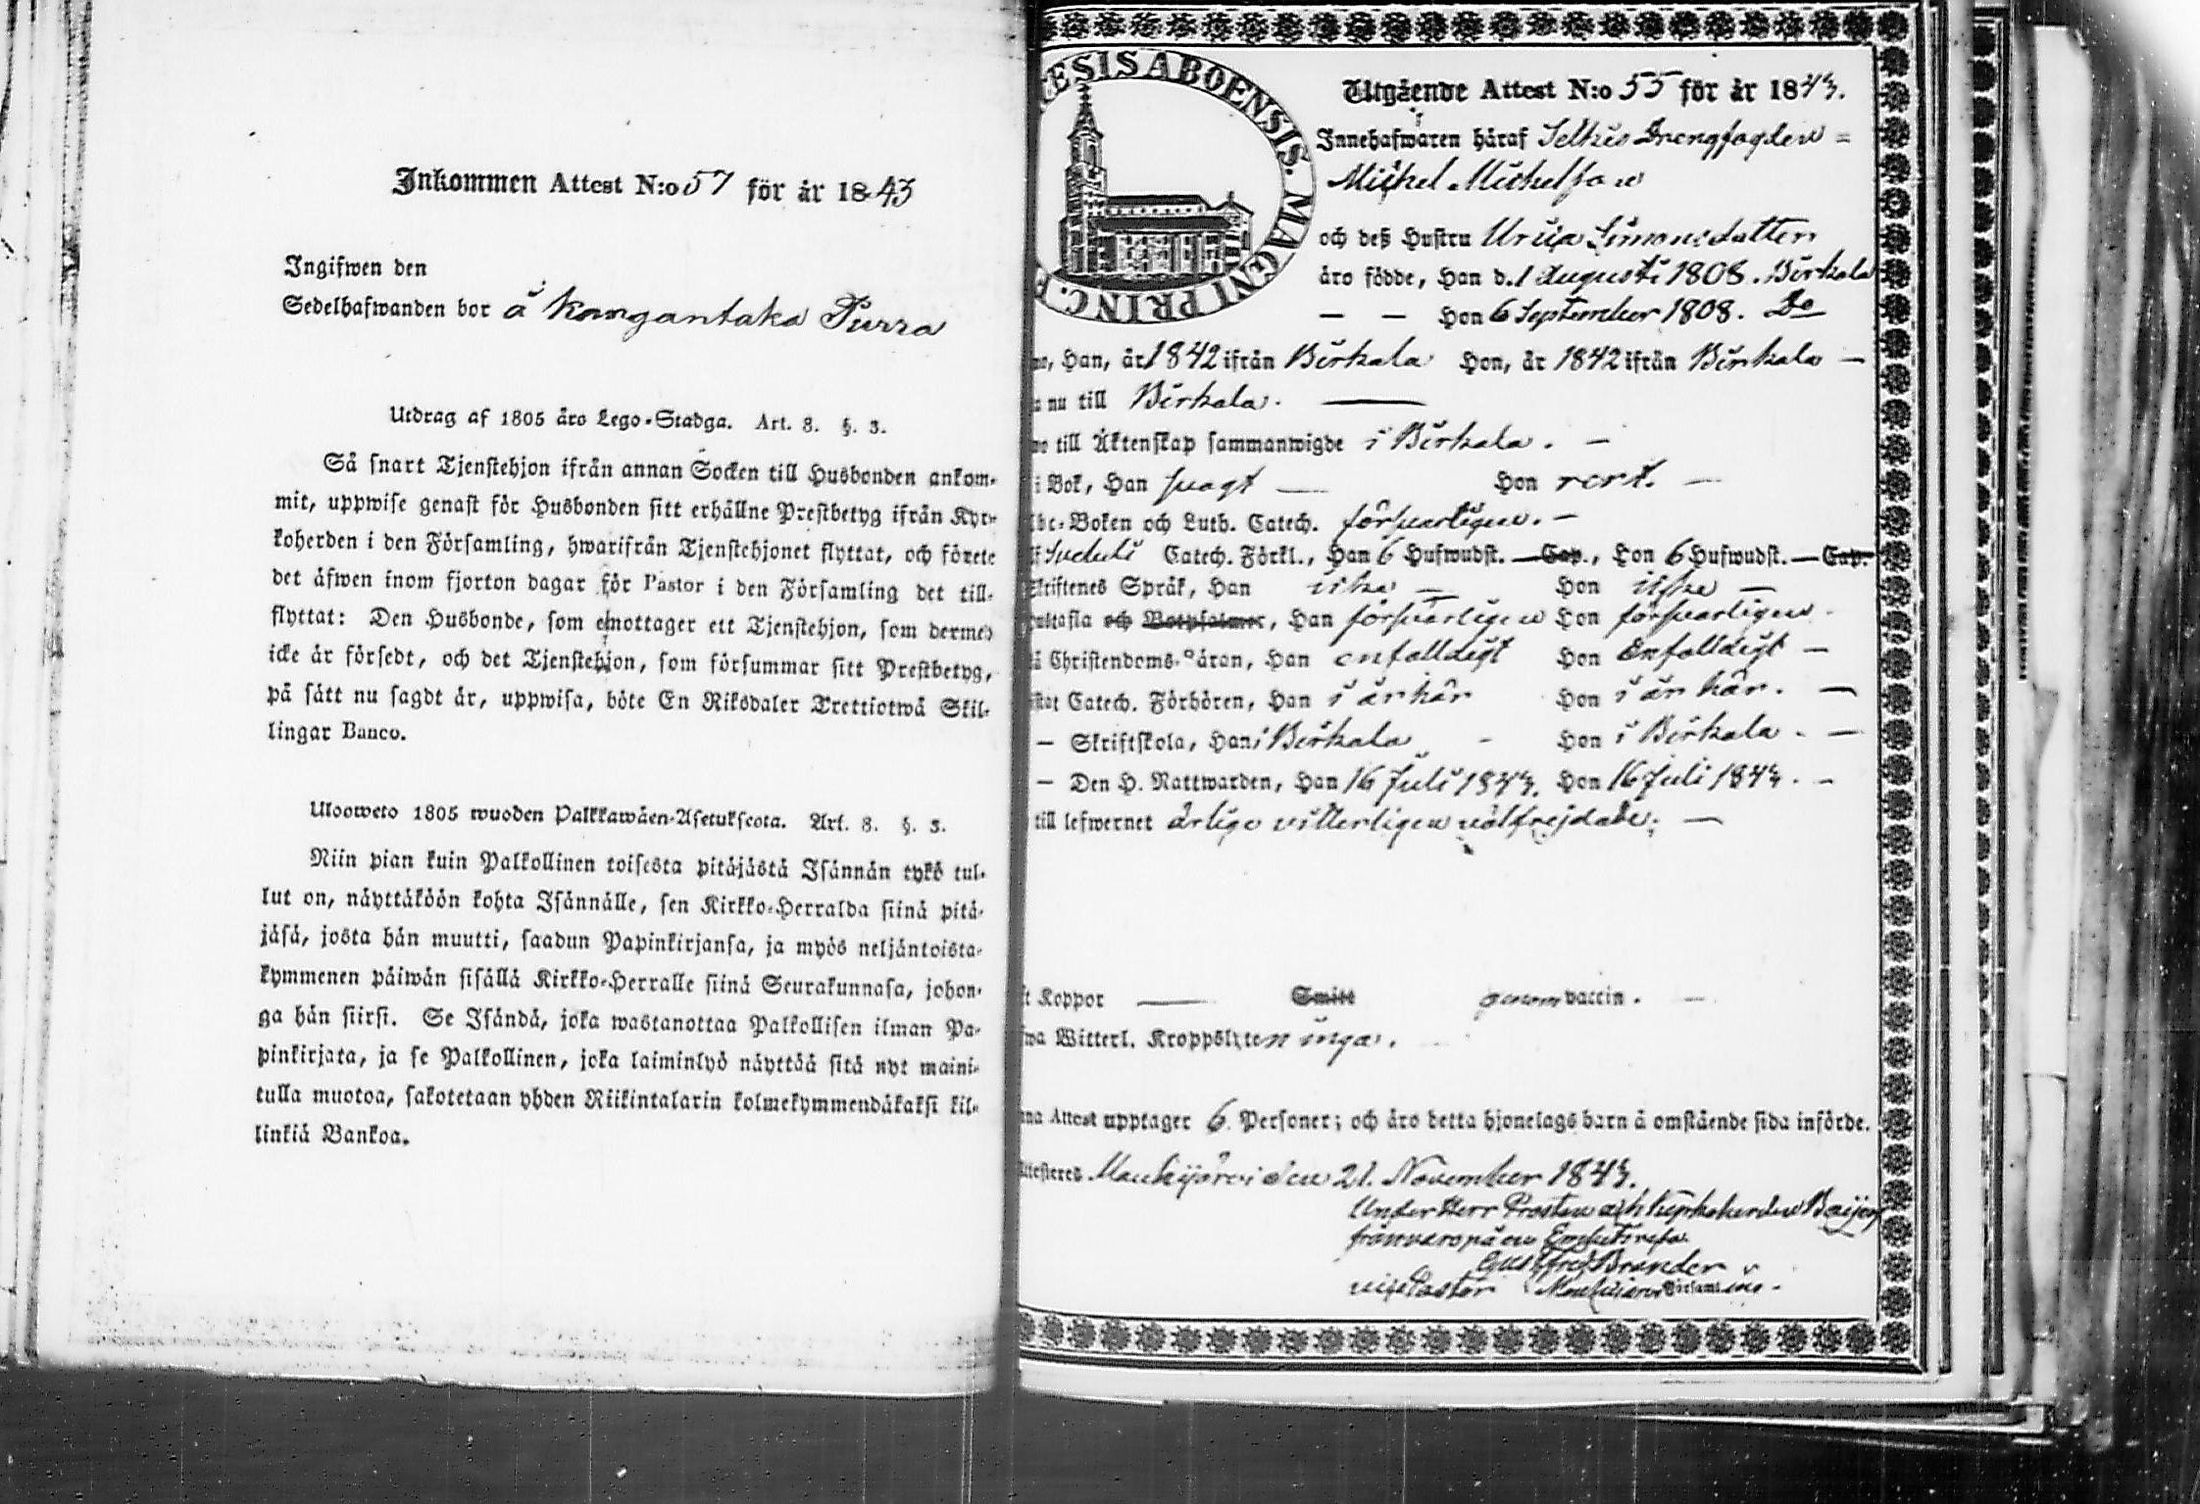 Inkommen Attest N:o 57 för år 1843
Ingifwen den
Sedelhafwanden bor å Kangantaka Purra
Utdrag af 1805 års Lego-Stadga. Art. 8. §. 3.
Så snart Tjenstehjon ifrån annan Socken till Husbonden ankom-
mit, uppwise genast för Husbonden sitt erhållne Prestbetyg ifrån Kyr-
koherden i den Församling, hwarifrån Tjenstehjonet flyttat, och förete
det äfwen inom fjorton dagar för Pastor i den Församling det till-
flyttat: Den Husbonde, som emottager ett Tjenstehjon, som dermed
icke är försedt, och det Tjenstehjon, som försummar sitt Prestbetyg,
på sätt nu sagdt är, uppwisa, böte En Riksdaler Trettiotwå Skil-
lingar Banco.
Ulosweto 1805 wuoden Palkkawäen-Asetuksesta. Art. 8. §. 3.
Niin pian kuin Palkollinen toisesta pitäjästä Isännän tykö tul-
lut on, näyttäköön kohta Isännälle, sen Kirkko-Herralda siinä pitä-
jäsä, josta hän muutti, saadun Papinkirjansa, ja myös neljäntoista-
kymmenen päiwän sisällä Kirkko-Herralle siinä Seurakunnasa, johon-
ga hän siirsi. Se Isändä, joka wastanottaa Palkollisen ilman Pa-
pinkirjata, ja se Palkollinen, joka laiminlyö näyttää sitä nyt maini-
tulla muotoa, sakotetaan yhden Riikintalarin kolmekymmendäkaksi kil-
linkiä Bankoa.
ESIS ABOENSIS. MAGNI PRINC. F
Utgående Attest N:o 55 för år 1843.
Innehafwaren häraf Selkis Drengfogden
Michel Michelsson
och deß Hustru Ursila Simonsdotter
äro födde, Han d. 1 Augusti 1808. Birkala
— — Hon 6 September 1808. Do
Han, år 1842 ifrån Birkala Hon, år 1842 ifrån Birkala —
nu till Birkala. —
till Äktenskap sammanwigde i Birkala. —
i Bok, Han svagt — Hon rert. —
Boken och Luth. Catech. försvarligen. —
Catech. Förkl., Han 6 Hufwudst. — Cap., Hon 6 Hufwudst. — Cap.
Skriftenes Språk, Han icke — Hon icke —
Hustafla och Botpsalmer, Han försvarligen Hon försvarligen
Christendoms-Läran, Han enfalldigt Hon Enfalldigt —
Catech. Förhören, Han i år här Hon i år här. —
— Skriftskola, Han i Birkala - Hon i Birkala. —
— Den H. Nattwarden, Han 16 Juli 1843. Hon 16 Juli 1843. —
till lefwernet ärlige vitterligen välfrejdade. —
Koppor — Smitt genom vaccin. —
Witterl. Kroppslyten inga.
Attest upptager 6 Personer; och äro detta hjonelags barn å omstående sida införde.
Mouhijärvi den 21. November 1843.
Under Herr Prosten och Kyrkoherden
frånvaro på en Embetsresa
Brander
vice Pastor